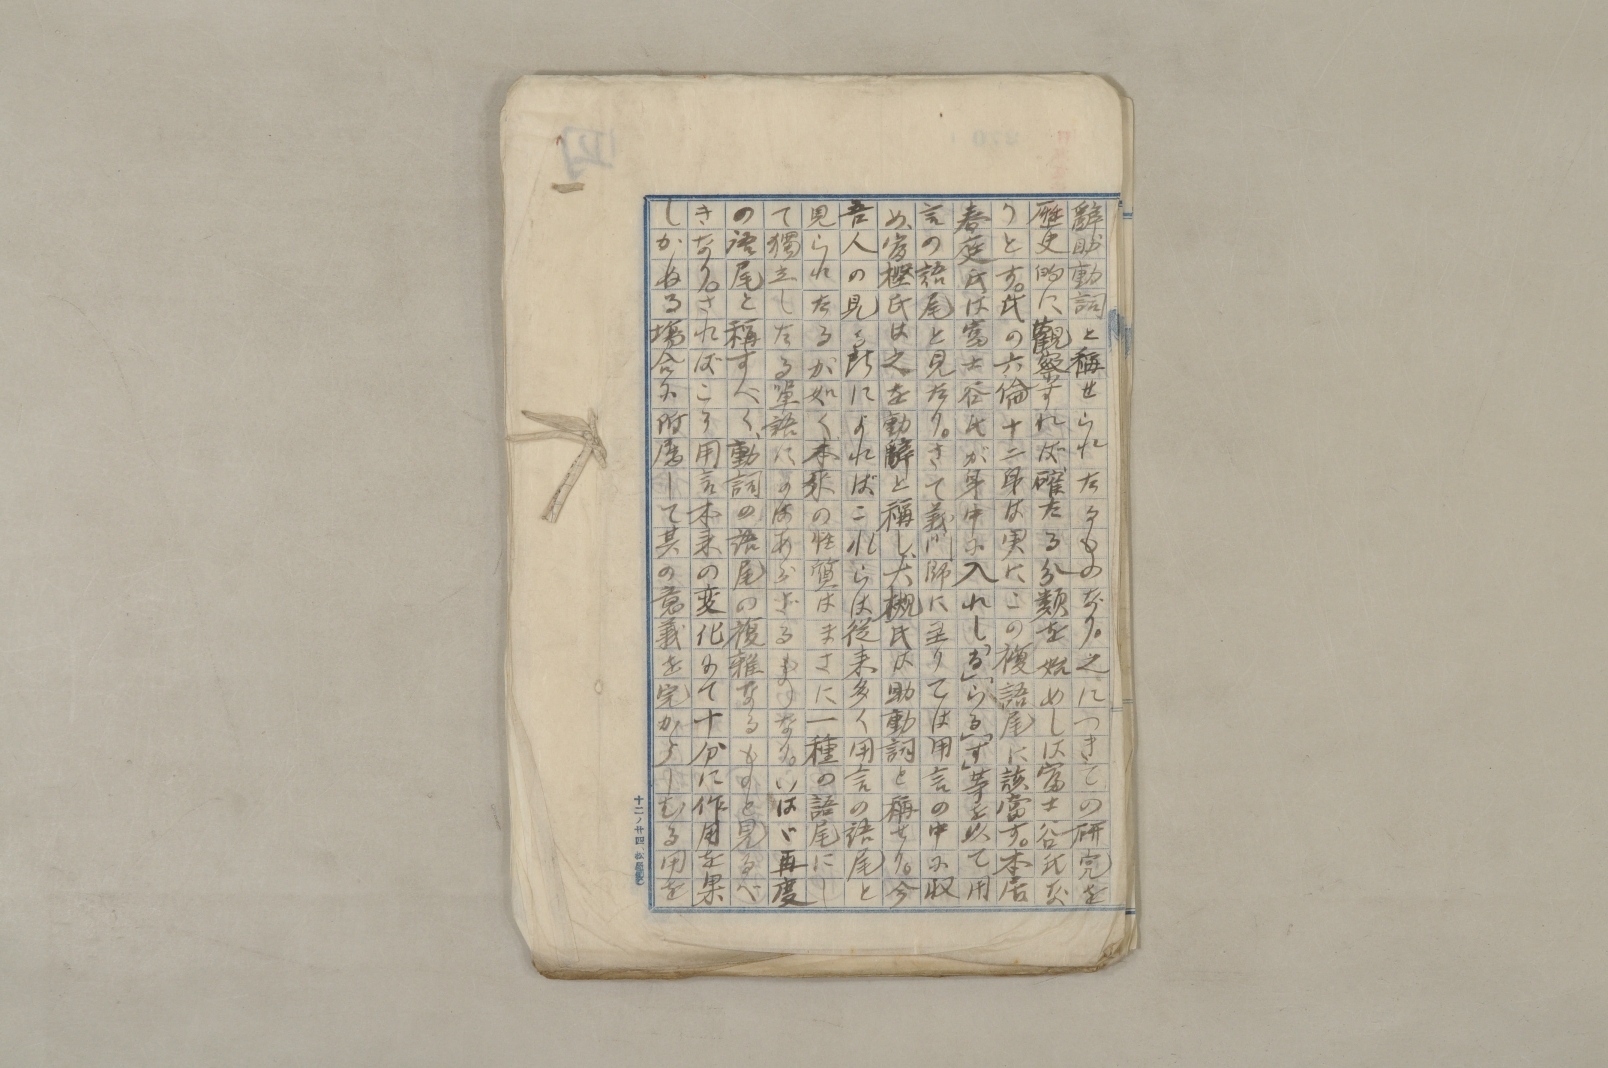 辭助動詞と稱せられたるものなり。之につきての研究を
歴史的に觀察すれば確たる分類を始めしは富士谷氏な
りとす。氏の六倫十二身は実にこの複語尾に該當す。本居
春庭氏は富士谷氏が身中に入れし「る」「らる」「す」等を以て用
言の語尾と見たり。さて義門師に至りては用言の中に收
め、富樫氏は之を動辭と稱し、大槻氏は助動詞と稱せり。今
吾人の見る所によればこれらは従来多く用言の語尾と
見られたるが如く本来の性質はまさに一種の語尾にし
て獨立したる單語にはあらざるものなり。いはゞ再度
の語尾と稱すべく、動詞の語尾の複雜なるものと見るべ
きなり。さればこそ用言本来の変化にて十分に作用を果
しかぬる場合に附屬して其の意義を完からしむる用を
十二ノ廿四